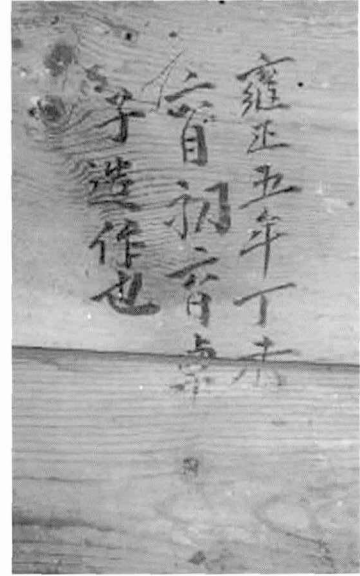 雍正五年丁未
六月初六日桌
子造作也